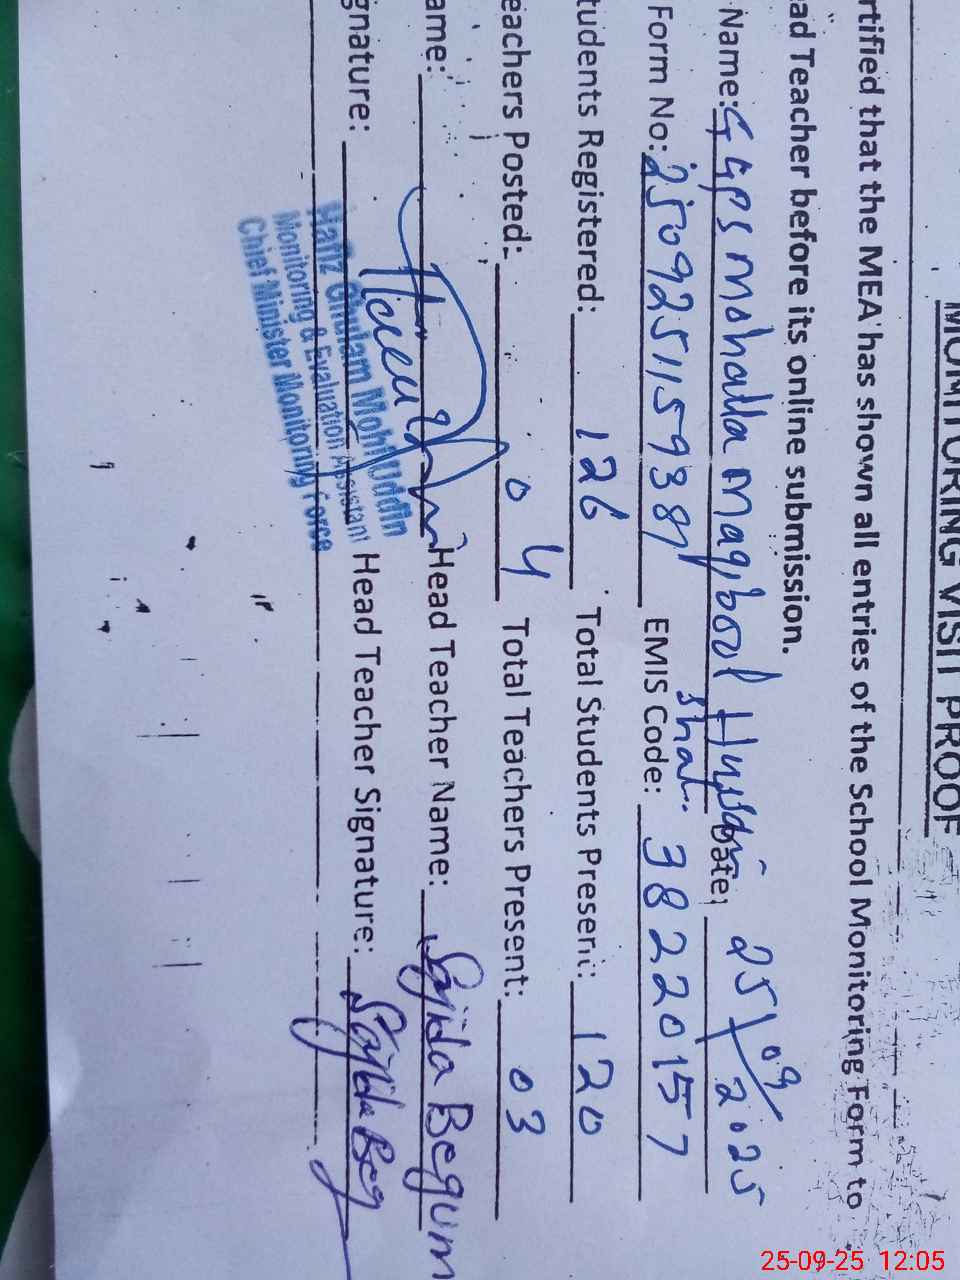 MONITORING VISIT PROOF
rtified that the MEA has shown all entries of the School Monitoring Form to
ad Teacher before its online submission.
Name: GGPS Mohalla Maqbool Hussain Date: 25/09/2025
Shah.
Form No: 250925115938 EMIS Code: 38220157
tudents Registered: 126 Total Students Present: 120
eachers Posted: 04 Total Teachers Present: 03
ame: Head Teacher Name: Sajida Begum
gnature: Head Teacher Signature: Sajida Beg
Hafiz Ghulam Mohi Uddin
Monitoring & Evaluation Assistant
Chief Minister Monitoring Force
25-09-25 12:05